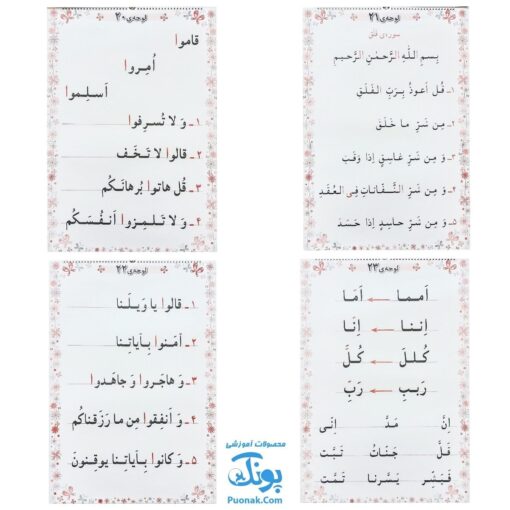 لوحه‌ی ۲۰
قاموا
اُمِروا
اَسلِموا
۱ـ وَ لا تُسرِفوا
۲ـ قالوا لا تَخَف
۳ـ قُل هاتوا بُرهانَکُم
۴ـ وَ لا تَلمِزوا اَنفُسَکُم
لوحه‌ی ۲۱
سوره‌ی فلق
بِسمِ اللّٰهِ الرَّحمٰنِ الرَّحیمِ
۱ـ قُل اَعوذُ بِرَبِّ الفَلَقِ
۲ـ مِن شَرِّ ما خَلَقَ
۳ـ وَ مِن شَرِّ غاسِقٍ اِذا وَقَبَ
۴ـ وَ مِن شَرِّ النَّفّاثاتِ فِی العُقَدِ
۵ـ وَ مِن شَرِّ حاسِدٍ اِذا حَسَدَ
لوحه‌ی ۲۲
۱ـ قالوا یا وَیلَنا
۲ـ آمَنوا بِآیاتِنا
۳ـ وَ هاجَروا وَ جاهَدوا
۴ـ وَ اَنفِقوا مِن ما رَزَقناکُم
۵ـ وَ کانوا بِآیاتِنا یوقِنونَ
لوحه‌ی ۲۳
اَمما ← اَمّا
اِننا ← اِنّا
کُللَ ← کُلَّ
رَببِ ← رَبِّ
اِنَّ مَدَّ اِنّی
قَلَّ جَنّاتُ تَبَّت
فَبَشِّر یَسَّرنا تَمَّت
محصولات آموزشی
پونک
Puonak.Com